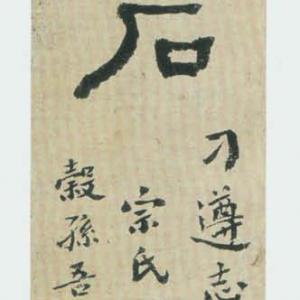 石
刁遵志
宗氏
穀孫吾